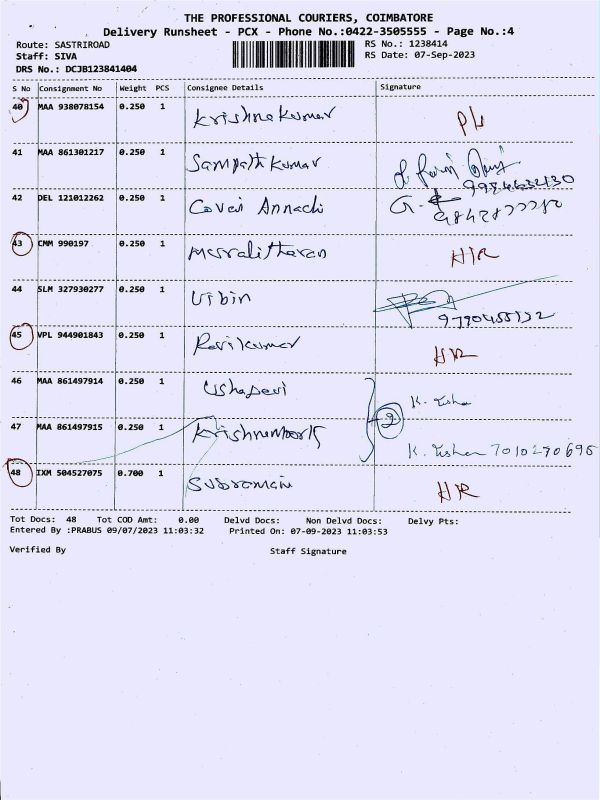 THE PROFESSIONAL COURIERS, COIMBATORE
Delivery Runsheet - PCX - Phone No.:0422-3505555 - Page No.:4
Route: SASTRIROAD RS No.: 1238414
Staff: SIVA RS Date: 07-Sep-2023
DRS No.: DCJB123841404
S No Consignment No Weight PCS Consignee Details Signature
40 MAA 938078154 0.250 1 Krishnakumar
41 MAA 861301217 0.250 1 Sampath Kumar
42 DEL 121012262 0.250 1 Covai Annachi
43 CMM 990197 0.250 1 Muralitharan HR
44 SLM 327930277 0.250 1 Vibin
45 VPL 944901843 0.250 1 Ravikumar HR
46 MAA 861497914 0.250 1 Ushadevi K. Usha
2
47 MAA 861497915 0.250 1 Krishnamoorty K. Usha 7010290695
48 IXM 504527075 0.700 1 Subromani HR
Tot Docs: 48 Tot COD Amt: 0.00 Delvd Docs: Non Delvd Docs: Delvy Pts:
Entered By :PRABUS 09/07/2023 11:03:32 Printed On: 07-09-2023 11:03:53
Verified By Staff Signature